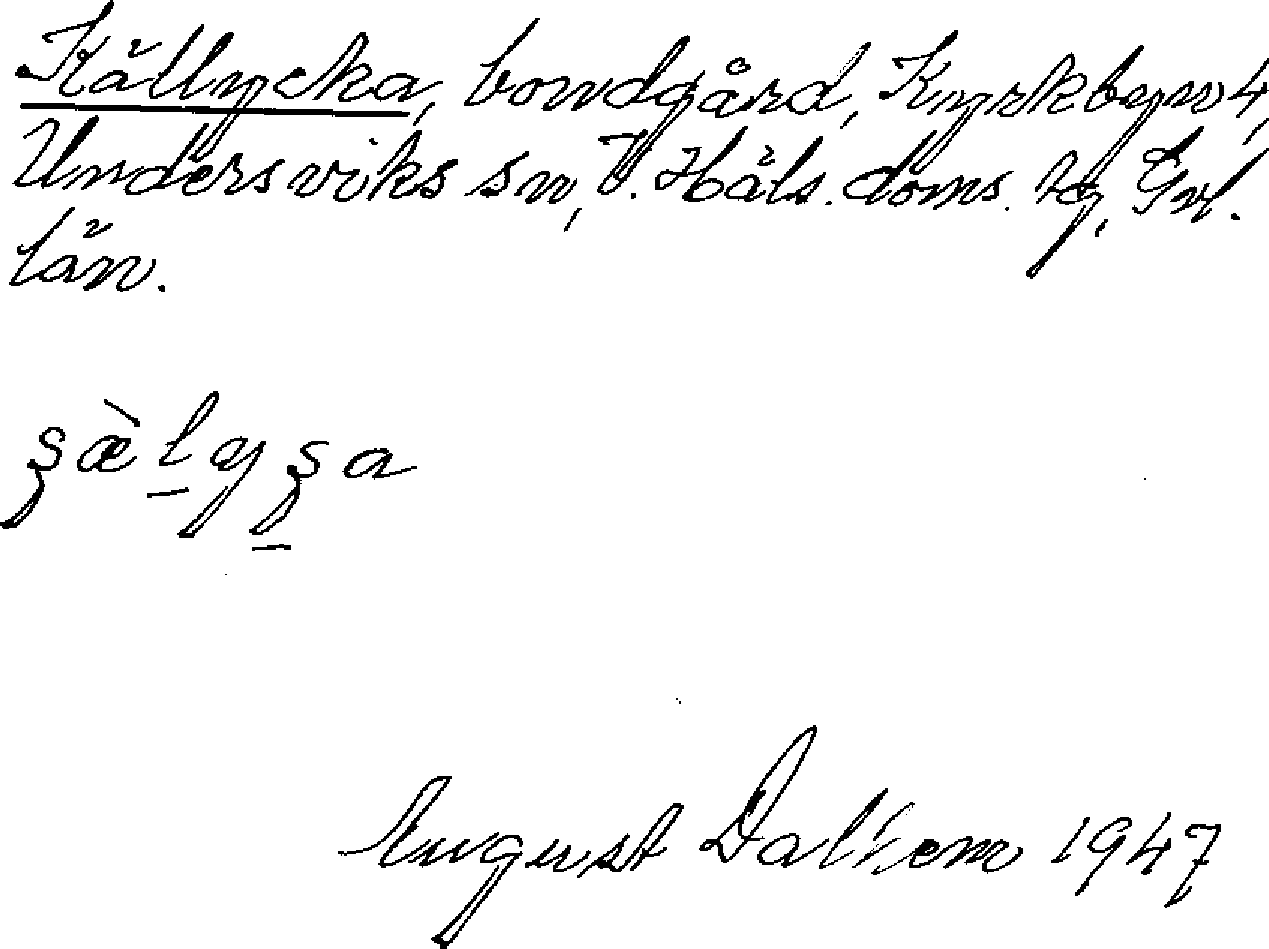 Källycka, bondgård, Kyrkbyn 4,
Undersviks sn, V. Häls. doms. tg, Gvl.
län.
August Dalhem 1947